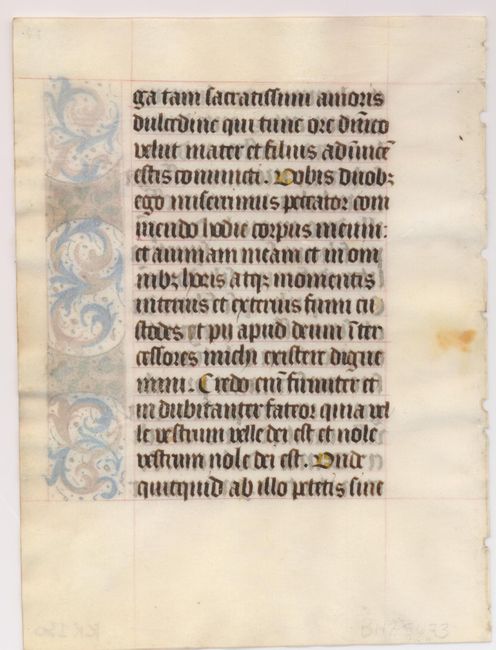 ga tam sacratissimi amoris
dulcedine qui tunc ore diuīco
velut mater et filius ad
estis coniuncti. Vobis duobꝫ
ego miserrimus peccator com
mendo hodie corpus meum:
et animam meam et in om
nibꝫ horis atqꝫ momentis
interius et exterius firmi cu
stodes et pii apud deum īter
cessores michi existere digne
mini. Credo eni firmiter et
indubitanter fateor quia vel
le vestrum velle dei est et nole
vestrum nole dei est. Vnde
quicquid ab illo petetis sine